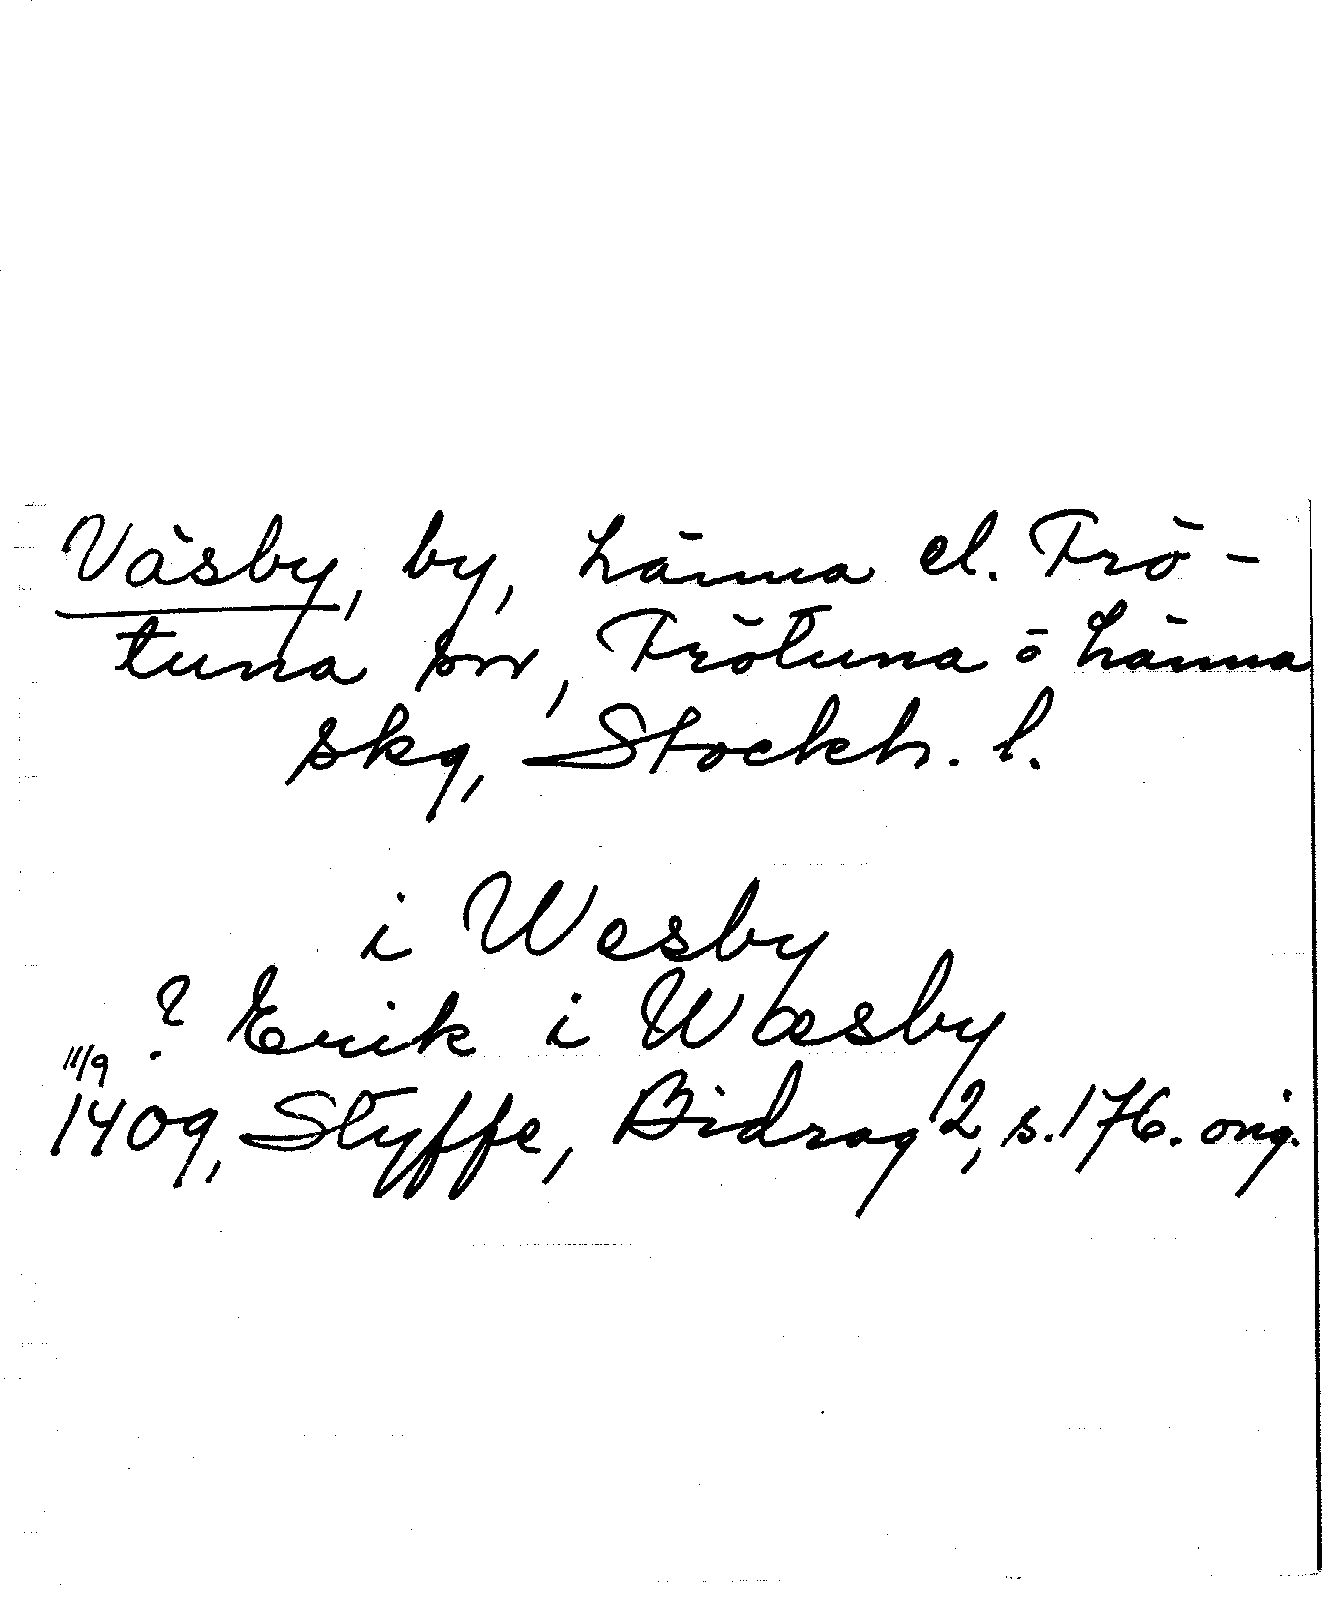 Väsby, by, Länna el. Frö-
tuna snr, Frötuna o Länna
skg, Stockh. l.
i Wesby
? Erik i Wæsby
11/9
1409, Styffe, Bidrag 2, s. 176. orig.